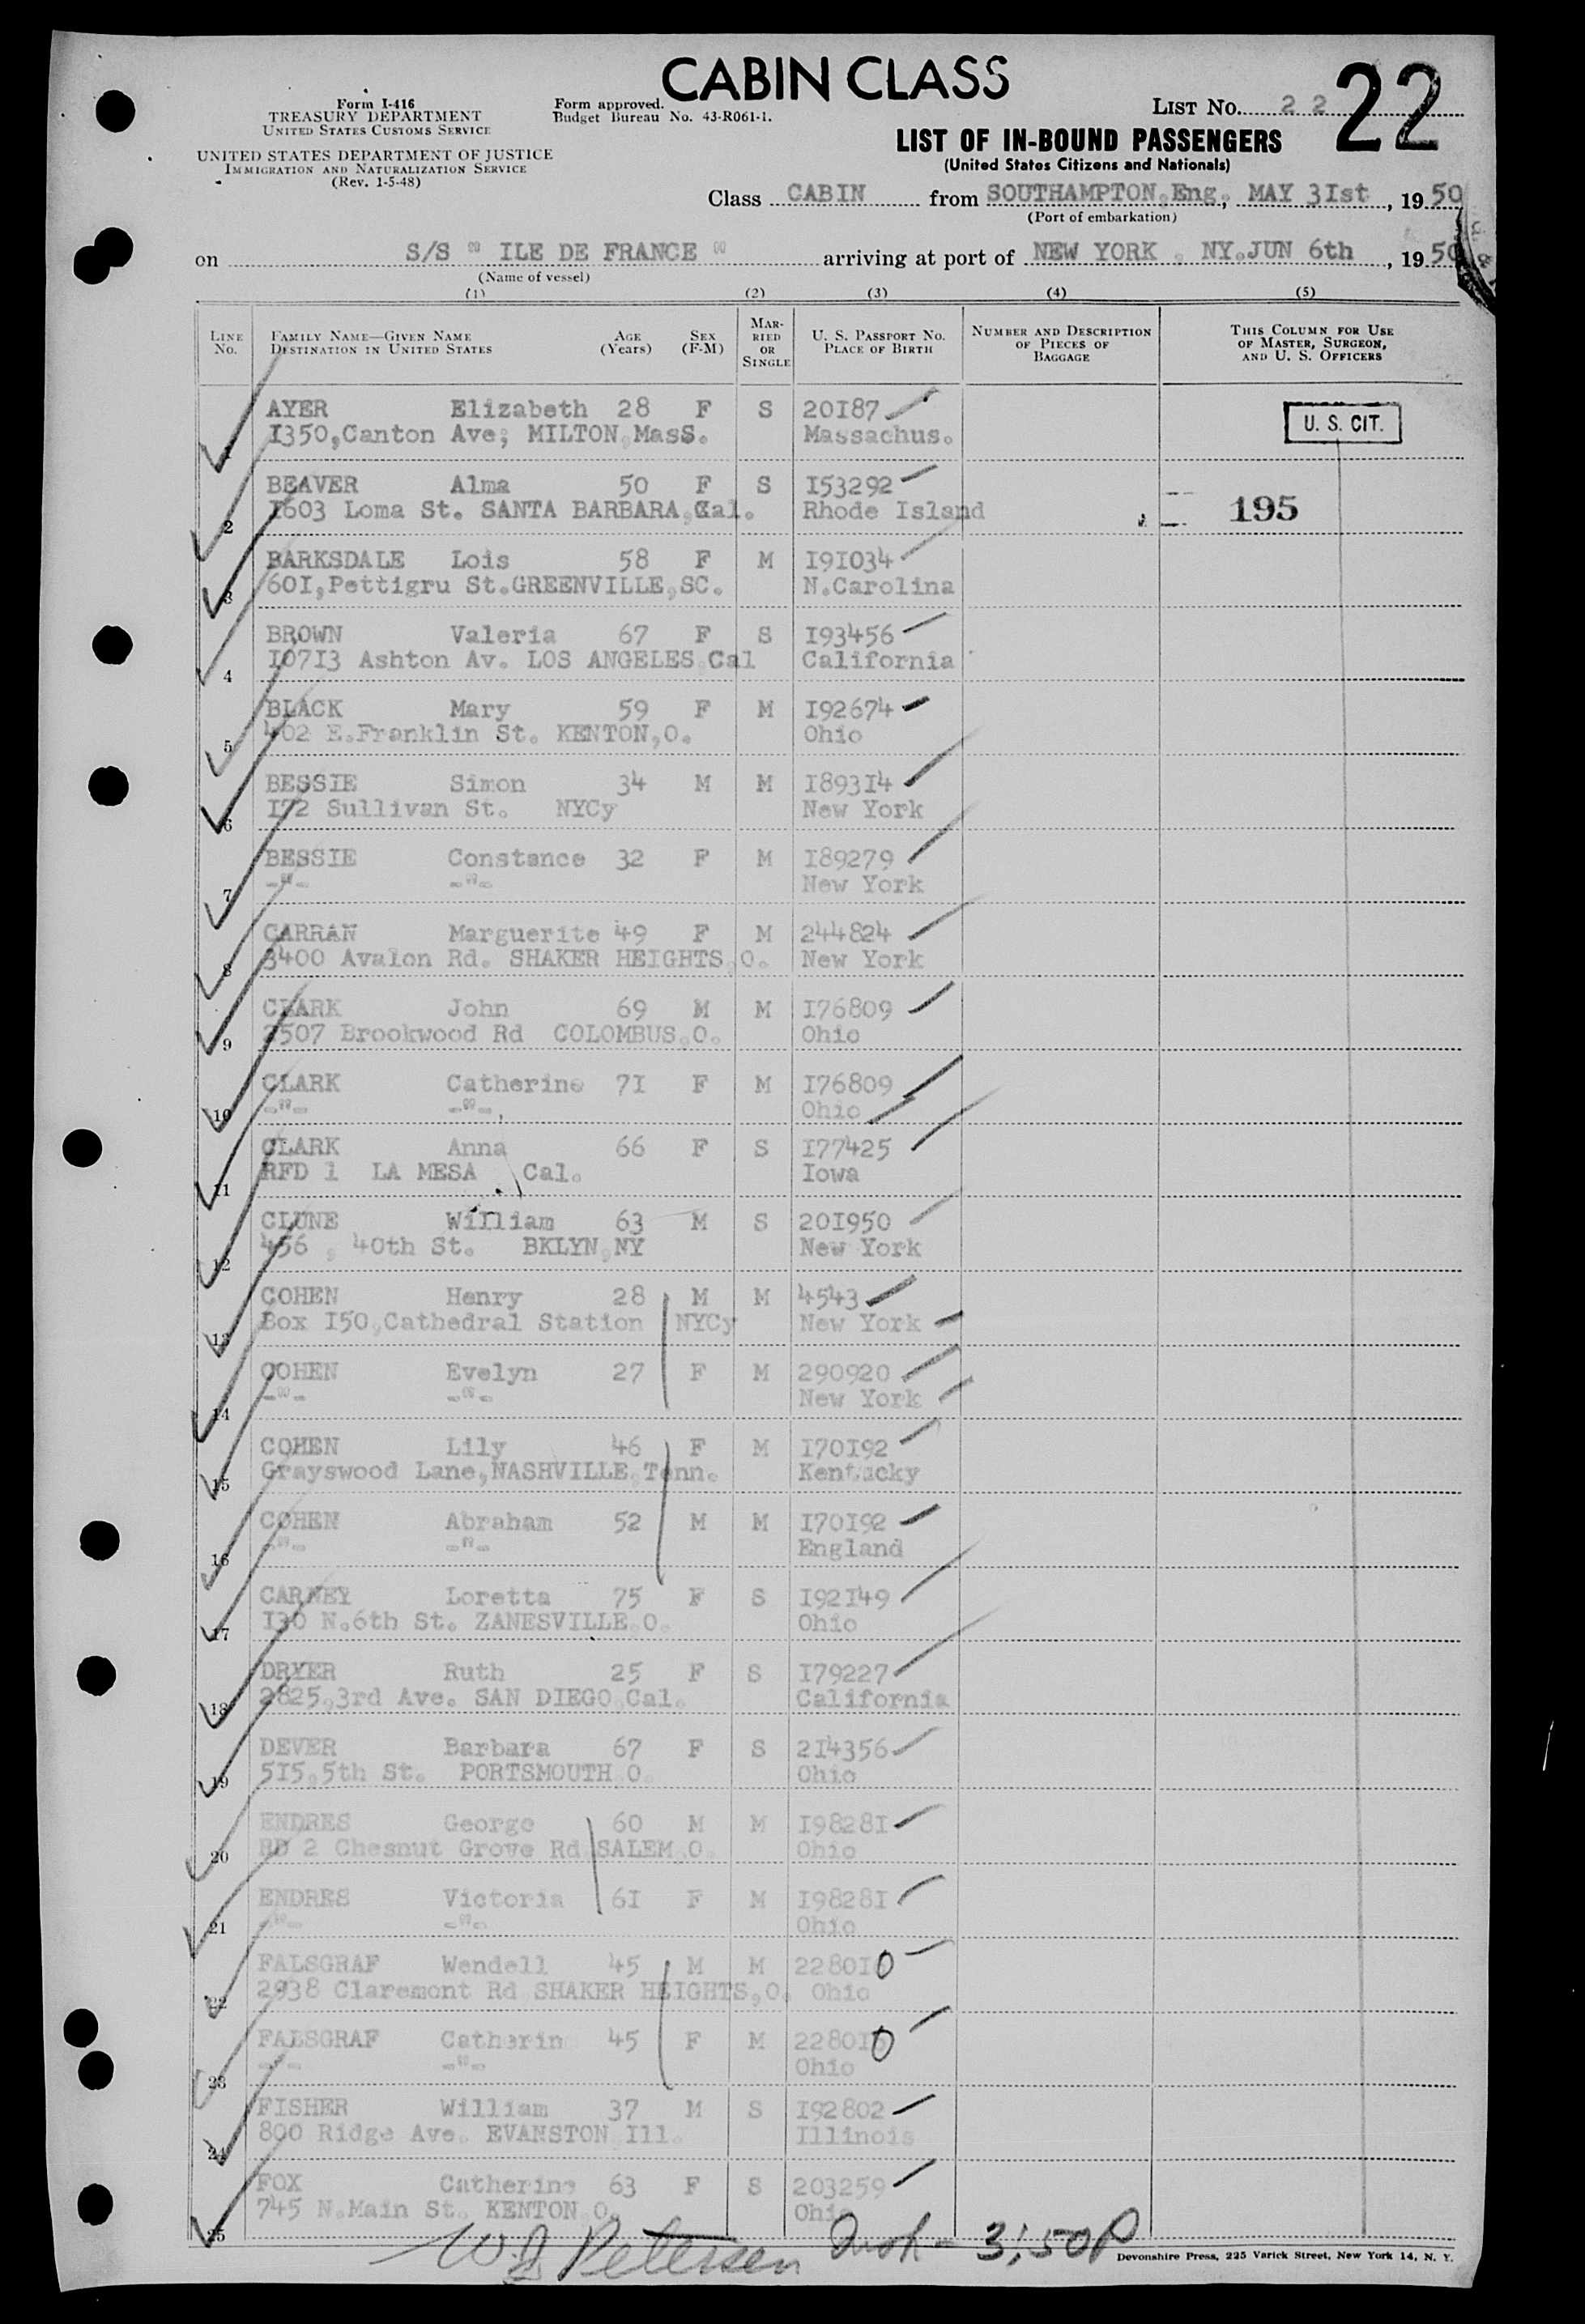 CABIN CLASS
22
Form I-416
TREASURY DEPARTMENT
UNITED STATES CUSTOMS SERVICE
Form approved.
Budget Bureau No. 43-R061-1.
LIST NO. 22
LIST OF IN-BOUND PASSENGERS
(United States Citizens and Nationals)
UNITED STATES DEPARTMENT OF JUSTICE
IMMIGRATION AND NATURALIZATION SERVICE
(Rev. 1-5-48)
Class CABIN from SOUTHAMPTON,Eng, MAY 3Ist, 1950
(Port of embarkation)
on S/S " ILE DE FRANCE " arriving at port of NEW YORK , NY.JUN 6th, 1950
(Name of vessel)
(1) (2) (3) (4) (5)
LINE No. FAMILY NAME—GIVEN NAME DESTINATION IN UNITED STATES AGE (Years) SEX (F-M) MARRIED OR SINGLE U. S. PASSPORT NO. PLACE OF BIRTH NUMBER AND DESCRIPTION OF PIECES OF BAGGAGE THIS COLUMN FOR USE OF MASTER, SURGEON, AND U. S. OFFICERS
AYER Elizabeth 28 F S 20I87 U. S. CIT.
I350,Canton Ave; MILTON,MasS. Massachus.
2 BEAVER Alma 50 F S I53292
I603 Loma St. SANTA BARBARA,Cal. Rhode Island 195
3 BARKSDALE Lois 58 F M I9I034
60I,Pettigru St.GREENVILLE,SC. N.Carolina
4 BROWN Valeria 67 F S I93456
I07I3 Ashton Av. LOS ANGELES,Cal California
5 BLACK Mary 59 F M I92674
402 E.Franklin St. KENTON,O. Ohio
6 BESSIE Simon 34 M M I893I4
I72 Sullivan St. NYCy New York
7 BESSIE Constance 32 F M I89279
-"- -"- New York
8 CARRAN Marguerite 49 F M 244824
3400 Avalon Rd. SHAKER HEIGHTS,O. New York
9 CLARK John 69 M M I76809
2507 Brookwood Rd COLOMBUS,O. Ohio
10 CLARK Catherine 7I F M I76809
-"- -"- Ohio
11 CLARK Anna 66 F S I77425
RFD 1 LA MESA Cal. Iowa
12 CLUNE William 63 M S 20I950
456 , 40th St. BKLYN,NY New York
13 COHEN Henry 28 M M 4543
Box I50,Cathedral Station NYCy New York
14 COHEN Evelyn 27 F M 290920
-"- -"- New York
15 COHEN Lily 46 F M I70I92
Grayswood Lane,NASHVILLE,Tenn. Kentucky
16 COHEN Abraham 52 M M I70I92
-"- -"- England
17 CARNEY Loretta 75 F S I92I49
I30 N.6th St. ZANESVILLE,O. Ohio
18 DRYER Ruth 25 F S I79227
2825,3rd Ave. SAN DIEGO,Cal. California
19 DEVER Barbara 67 F S 2I4356
5I5,5th St. PORTSMOUTH,O. Ohio
20 ENDRES George 60 M M I9828I
RD 2 Chesnut Grove Rd SALEM,O. Ohio
21 ENDRES Victoria 6I F M I9828I
-"- -"- Ohio
22 FALSGRAF Wendell 45 M M 2280I0
2938 Claremont Rd SHAKER HEIGHTS,O. Ohio
23 FALSGRAF Catherin 45 F M 2280I0
-"- -"- Ohio
24 FISHER William 37 M S I92802
800 Ridge Ave. EVANSTON,Ill. Illinois
25 FOX Catherine 63 F S 203259
745 N.Main St. KENTON,O. Ohio
W J Petersen 3:50P
Devonshire Press, 225 Varick Street, New York 14, N. Y.